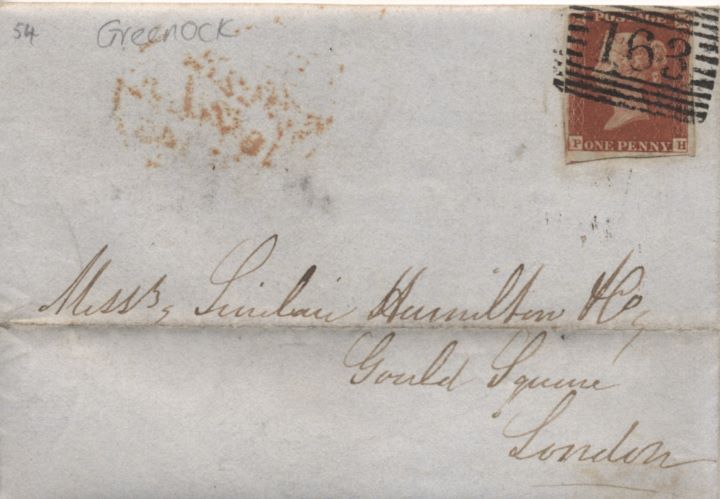 54 Greenock
POSTAGE
163
P ONE PENNY H
Messrs Sinclair Hamilton & Co
Gould Square
London